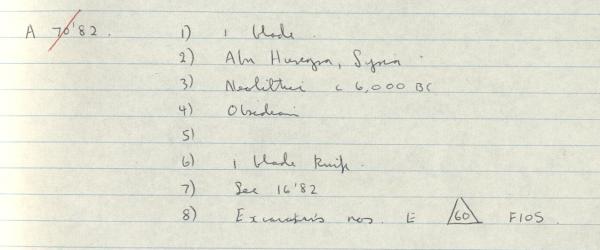 A 70'82. 1) 1 blade.
2) Abu Hureyra, Syria.
3) Neolithic c 6,000 BC
4) Obsidian
5)
6) 1 blade knife.
7) See 16'82
8) Excavator's nos. E 60 F105.